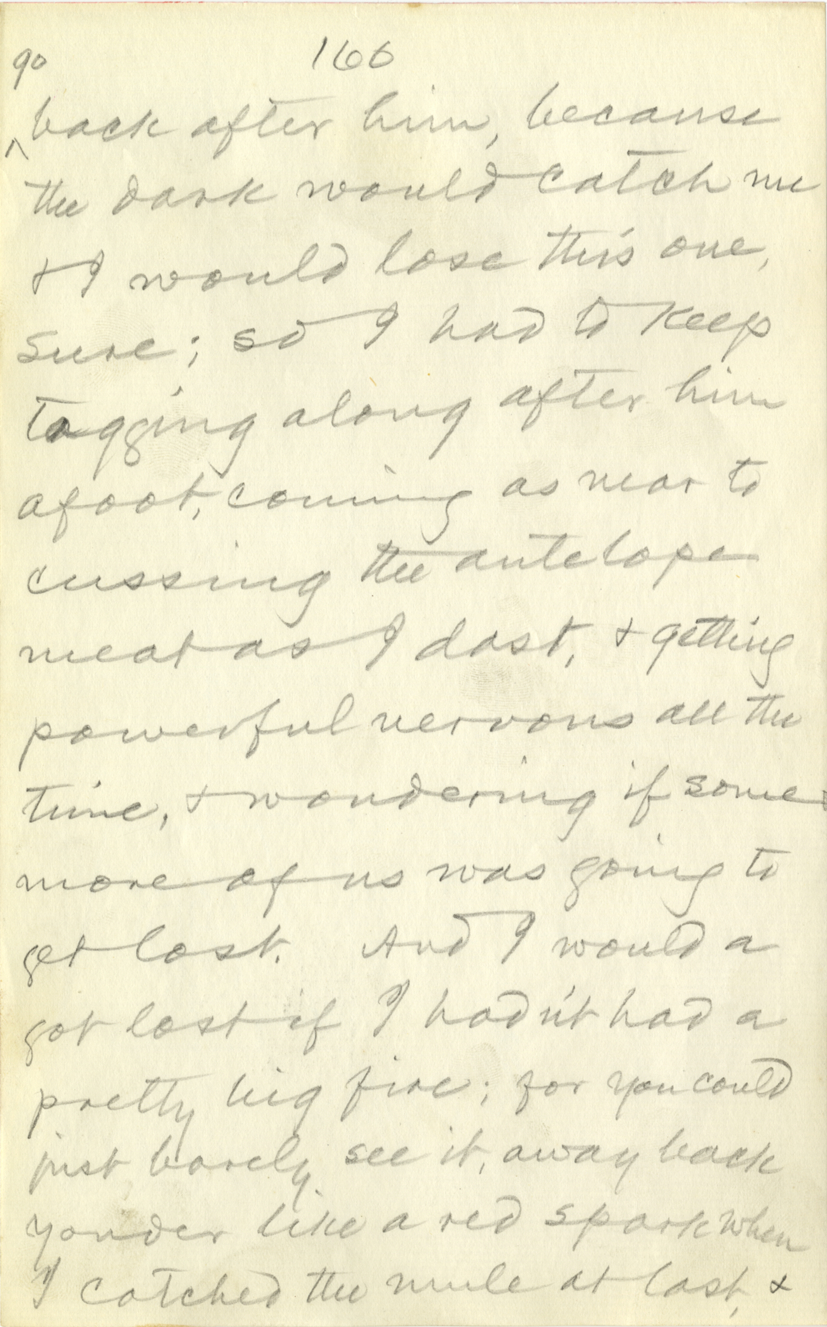 166
go
^back after him, because
the dark would catch me
& I would lose this one,
sure; so I had to keep
tagging along after him
afoot, coming as near to
cussing the antelope
meat as I dast, & getting
powerful nervous all the
time, & wondering if some
more of us was going to
get lost. And I would a
got lost if I hadn't had a
pretty big fire; for you could
just barely see it, away back
yonder like a red spark when
I catched the mule at last, &